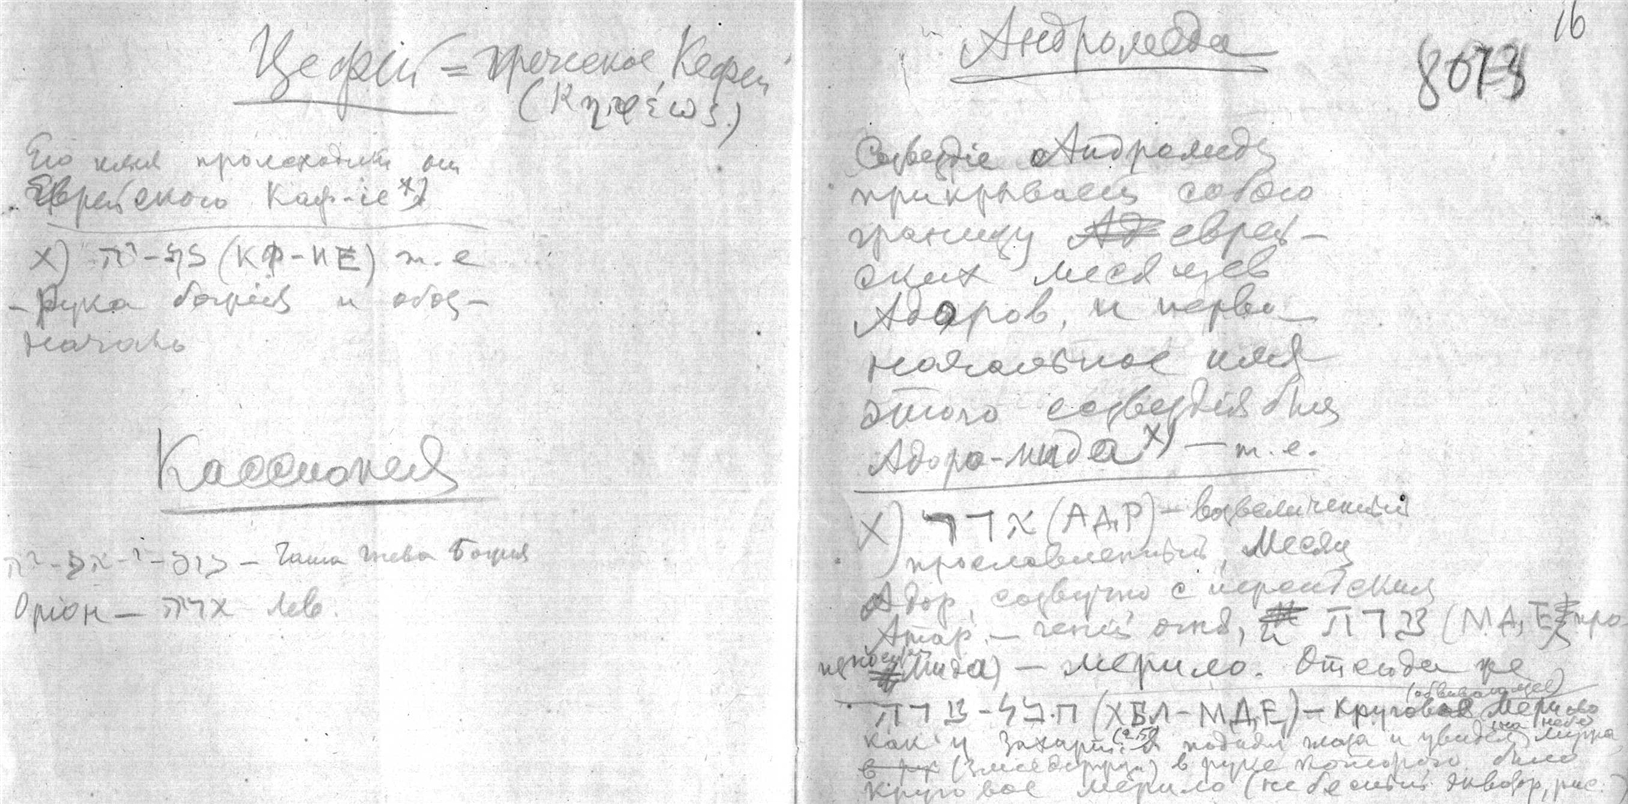 Цефей = греческое Кефей
(Κηφέως.)
Его имя происходит от
Еврейского Каф-іе х)
х) יה-כף (КФ-ИЕ) т. е
- Рука божия и обоз-
началь
Кассиопея
יה - Чаша гнева Божия
Оріон — אריה лев.
16
Андромеда
8073
Созвездіе Андромеды
прикрывает собою
границу еврей-
ских месяцев
Адаров, и перво-
начальное имя
этого созвездія был
Адоро-мида х) — т. е.
х) אדר (АДР) — возвеличенный
прославленный, Месяц
Адор, созвучно с персидским
Атар — гений огня, и מדה (МДЕ про-
износит Мида) — мерило. Отсюда же
(обвивающее)
חבל-מדה (ХБЛ-МДЕ) — круговое мерило
как у Захарии (2.5) поднял глаза и увидел на небе мужа
(Змеедержца) в руке которого было
круговое мерило (небесный экватор, рис. )